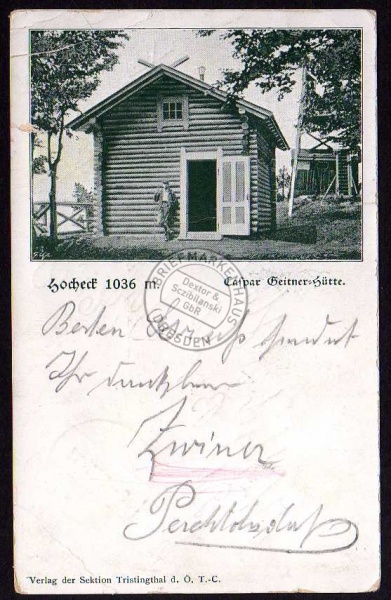 Hocheck 1036 m. Caspar Geitner-Hütte.
BRIEFMARKENHAUS
Dextor &
Sczibilanski
GbR
DRESDEN
Besten Gruß sendet
Ihr dankbarer
Perchtoldsdorf
Verlag der Sektion Tristingthal d. Ö. T.-C.